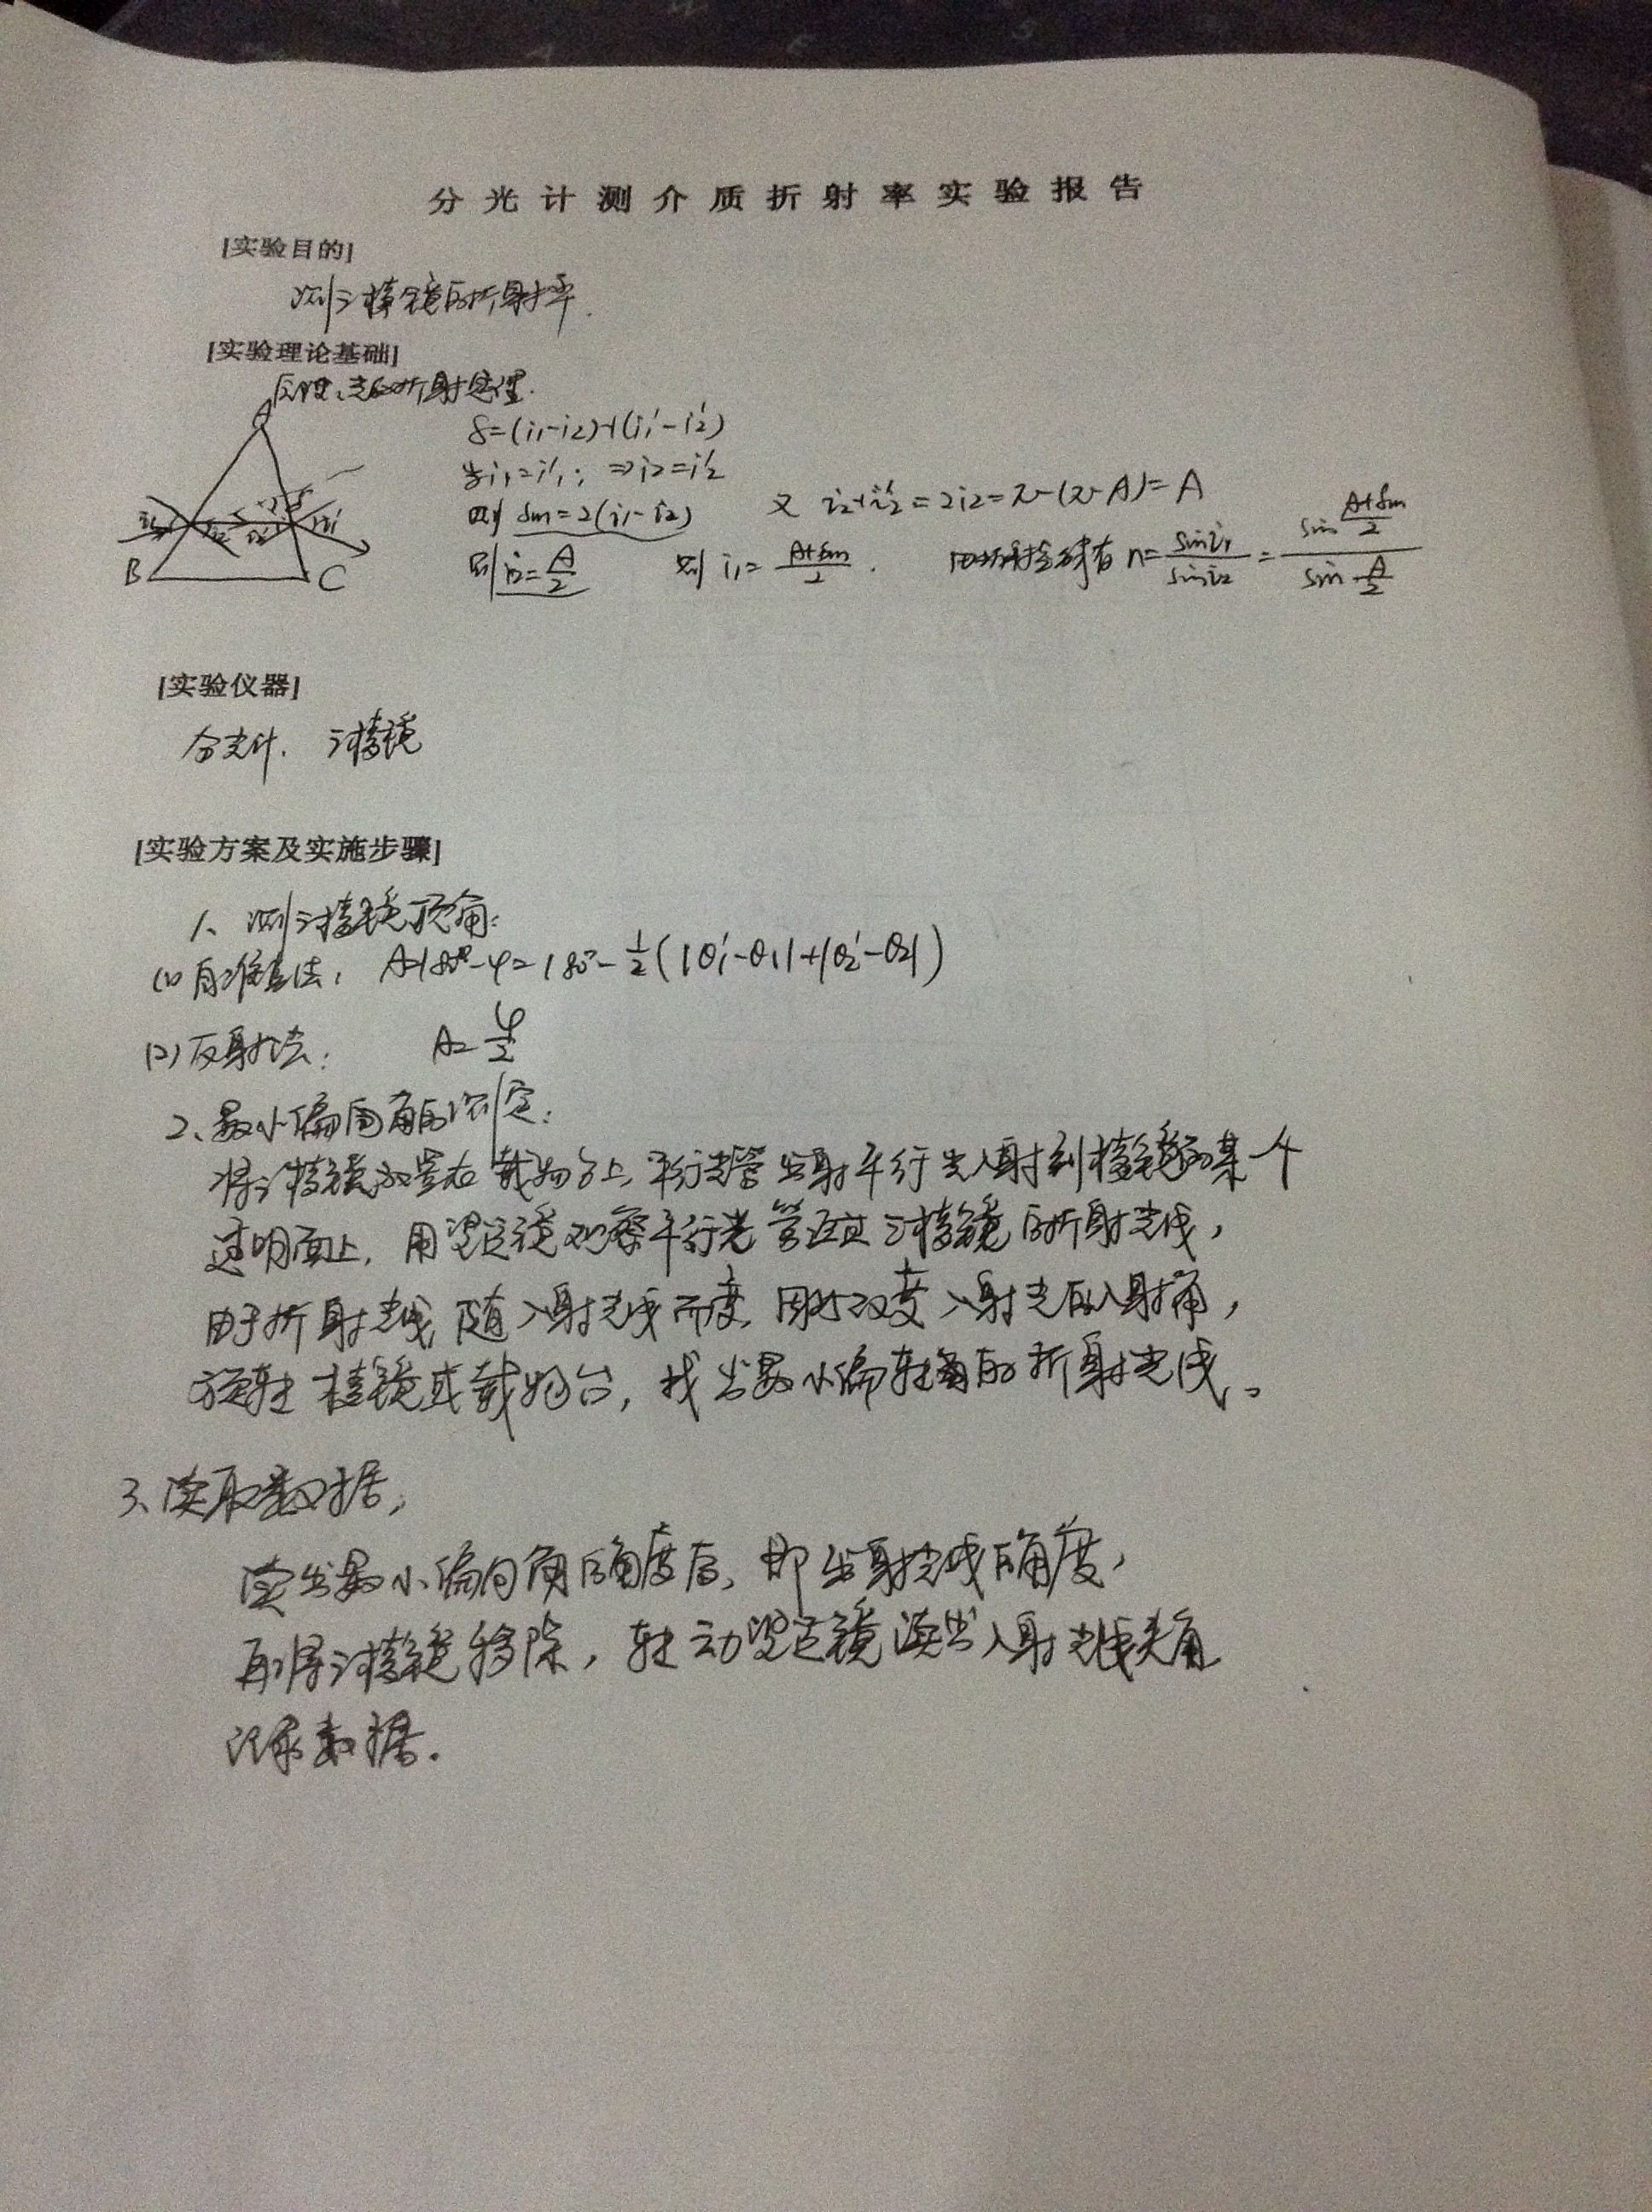 分光计测介质折射率实验报告
[实验目的]
测三棱镜的折射率.
[实验理论基础]
原理:光的折射定理.
A
δ=(i₁-i₂)+(i₁'-i₂')
当i₁=i₁'; ⇒i₂=i₂'
则 δm=2(i₁-i₂) 又 i₂+i₂'=2i₂=π-(π-A)=A
则i₂=A/2 则 i₁=(A+δm)/2. 由折射定律有 n=sini₁/sini₂=sin((A+δm)/2)/sin(A/2)
B C
[实验仪器]
分光计. 三棱镜
[实验方案及实施步骤]
1、测三棱镜顶角:
(1)自准直法: A=180°-φ=180°-1/2(|θ₁'-θ₁|+|θ₂'-θ₂|)
(2)反射法: A=φ/2
2、最小偏向角的测定:
将三棱镜放置在载物台上,平行光管出射平行光入射到棱镜的某一个
透明面上,用望远镜观察平行光管经过三棱镜的折射光线,
由于折射光线随入射光线而变,因此改变入射光的入射角,
旋转棱镜或载物台,找出最小偏转角的折射光线。
3、读取数据;
读出最小偏向角的角度后,即出射光线的角度,
再将三棱镜移除,转动望远镜读出入射光线夹角
记录数据.